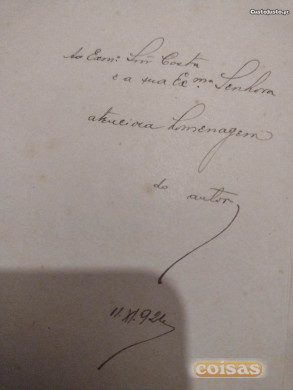 Ao Exmo. Snr Costa
e a sua Ex.ma Senhora
atenciosa homenagem
do autor
11.XI.924
coisas